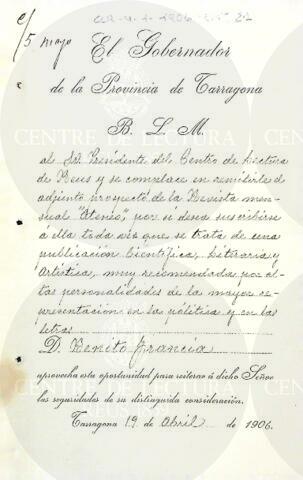 c/
5 mayo
El Gobernador
de la Provincia de Tarragona
B. L. M.
al Sr. Presidente del Centro de Lectura
de Reus y se complace en remitirle el
adjunto proyecto de la Revista men-
sual Ateneo, por si desea suscribirse
á ella toda vez que se trata de una
publicación Científica, Literaria y
Artística, muy recomendada por al-
tas personalidades de la mayor re-
presentación en la política y en las
letras
D. Benito Francia
aprovecha esta oportunidad para reiterar á dicho Señor
las seguridades de su distinguida consideración.
Tarragona 19 de Abril de 1906.
CENTRE DE LECTURA